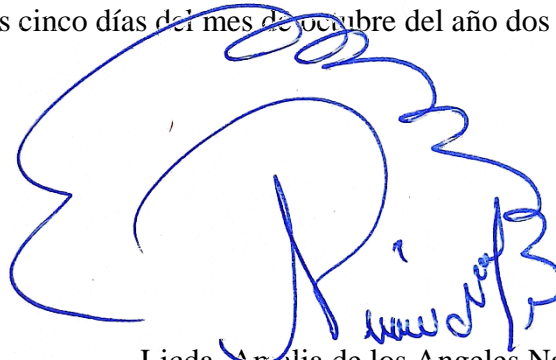 s cinco días del mes de octubre del año dos
Licda. Amalia de los Angeles N